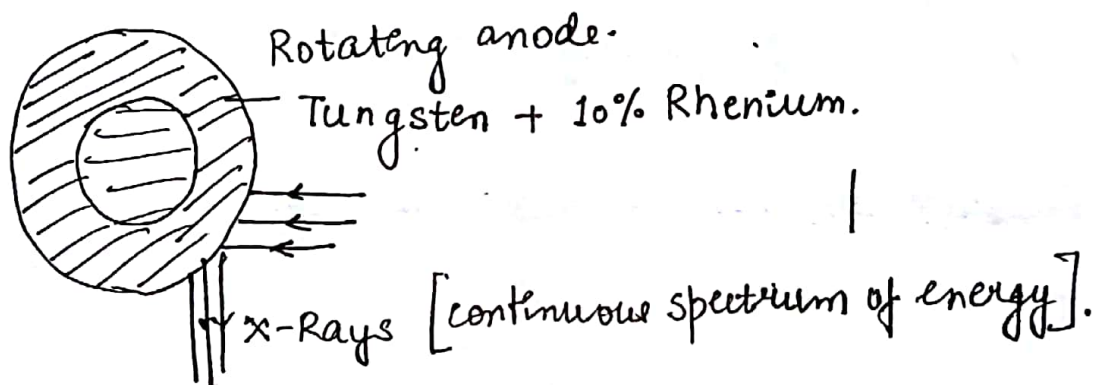 Rotating anode.
Tungsten + 10% Rhenium.
x-Rays [continuous spectrum of energy].